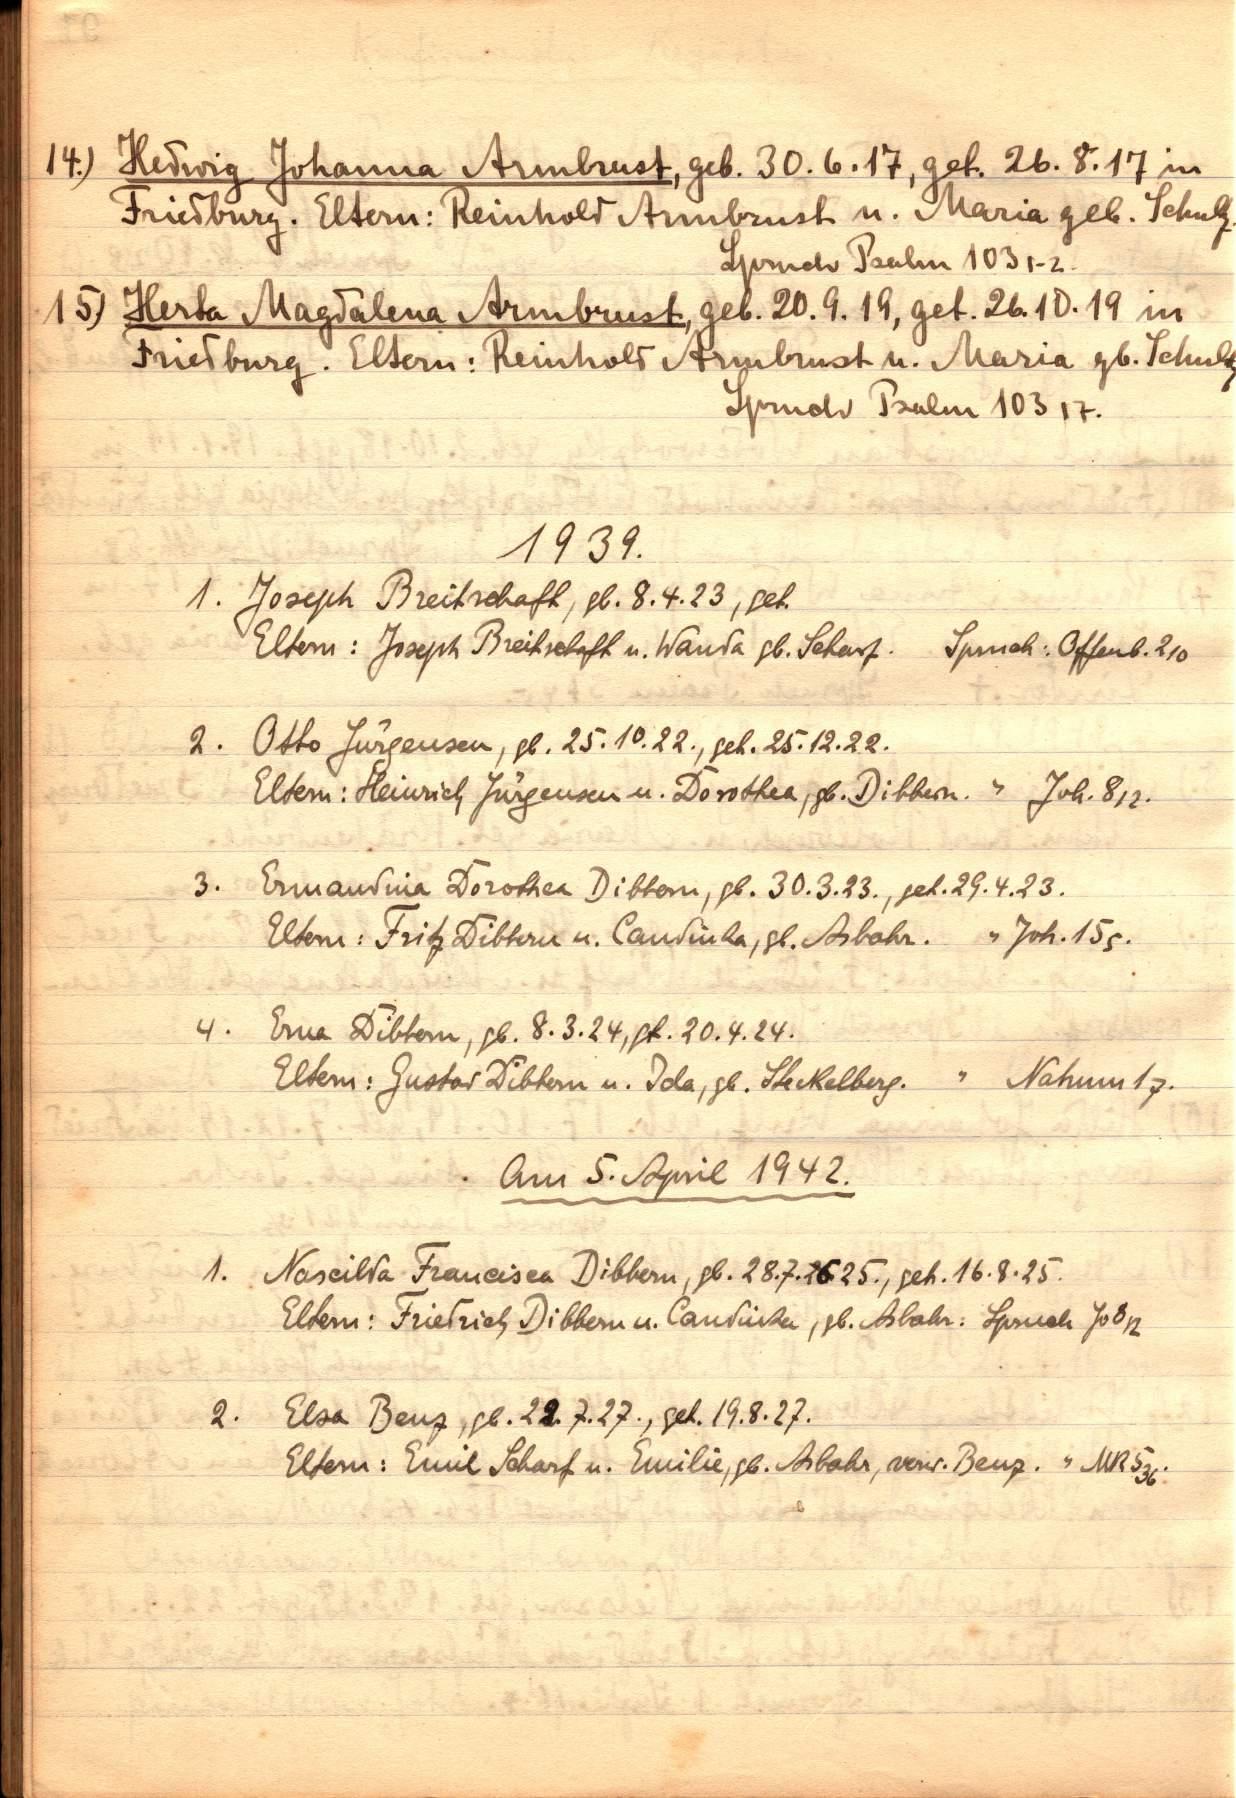 14.) Hedwig Johanna Armbrust, geb. 30.6.17, get. 26.8.17 in
Friedburg. Eltern: Reinhold Armbrust u. Maria geb. Schulz.
Spruch Psalm 103,1-2.
15) Herta Magdalena Armbrust, geb. 20.9.19, get. 26.10.19 in
Friedburg. Eltern: Reinhold Armbrust u. Maria gb. Schulz
Spruch Psalm 103,17.
1939.
1. Joseph Breitschaft, gb. 8.4.23, get.
Eltern: Joseph Breitschaft u. Wanda gb. Scharf. Spruch: Offenb. 2,10
2. Otto Jürgensen, gb. 25.10.22., get. 25.12.22.
Eltern: Heinrich Jürgensen u. Dorothea, gb. Dibbern. " Joh. 8,12.
3. Ermandina Dorothea Dibbern, gb. 30.3.23., get. 29.4.23.
Eltern: Fritz Dibbern u. Candinha, gb. Asbahr. " Joh. 15,5.
4. Erna Dibbern, gb. 8.3.24, gt. 20.4.24.
Eltern: Gustav Dibbern u. Ida, gb. Steckelberg. " Nahum 1,7.
Am 5. April 1942.
1. Nascilda Francisca Dibbern, gb. 28.7.25., get. 16.8.25.
Eltern: Friedrich Dibbern u. Candinha, gb. Asbahr: Spruch Jo 8,12
2. Elsa Benz, gb. 22.7.27., get. 19.8.27.
Eltern: Emil Scharf u. Emilie, gb. Asbahr, verw. Benz. " MK 5,36.